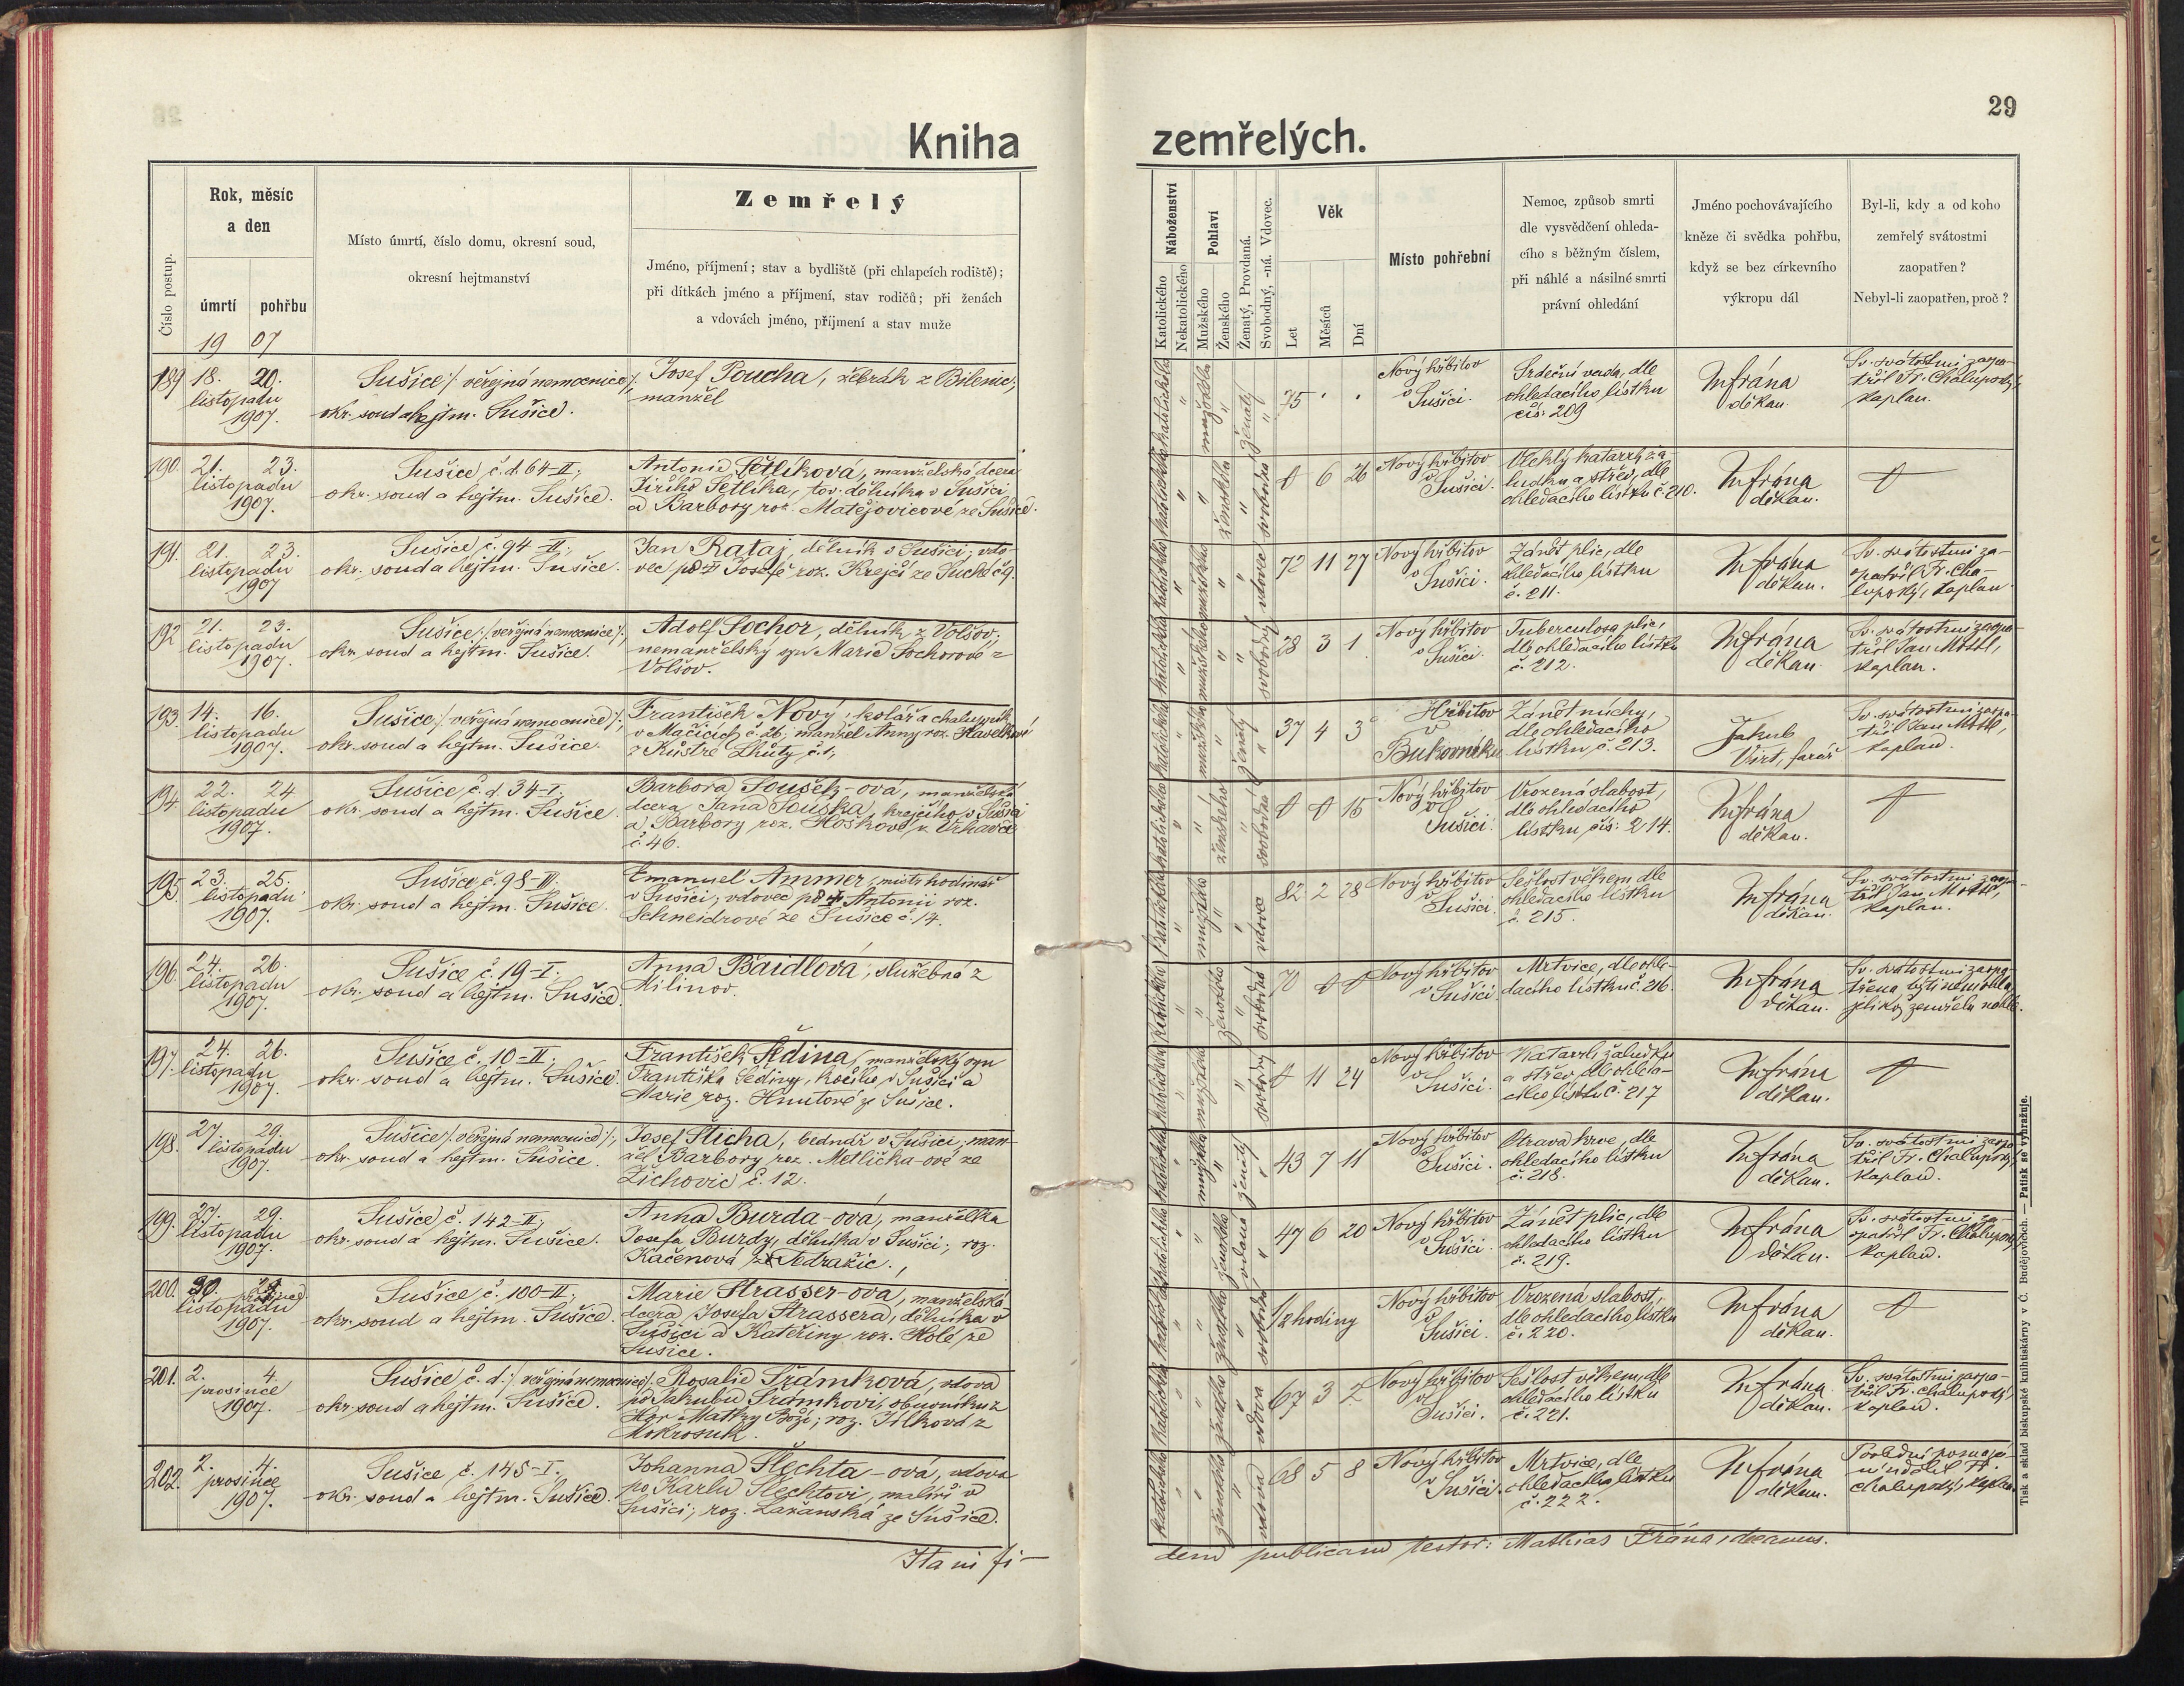 29
Kniha zemřelých.
Číslo postup.
Rok, měsíc
a den
úmrtí
pohřbu
Místo úmrtí, číslo domu, okresní soud,
okresní hejtmanství
Zemřelý
Jméno, příjmení; stav a bydliště (při chlapcích rodiště);
při dítkách jméno a příjmení, stav rodičů; při ženách
a vdovách jméno, příjmení a stav muže
Náboženství
Katolického
Nekatolického
Pohlaví
Mužského
Ženského
Ženatý, Provdaná.
Svobodný, -ná. Vdovec.
Věk
Let
Měsíců
Dní
Místo pohřební
Nemoc, způsob smrti
dle vysvědčení ohleda-
cího s běžným číslem,
při náhlé a násilné smrti
právní ohledání
Jméno pochovávajícího
kněze či svědka pohřbu,
když se bez církevního
výkropu dál
Byl-li, kdy a od koho
zemřelý svátostmi
zaopatřen?
Nebyl-li zaopatřen, proč?
19 07
189 18. 20.
listopadu
1907.
Sušice /: veřejná nemocnice :/
okr. soud a hejtm. Sušice.
Josef Poucha, žebrák z Bilenic,
manžel
katolického
mužského
ženatý
75 . .
Nový hřbitov
v Sušici.
Srdeční vada, dle
ohledacího lístku
čís: 209
MFrána
děkan
Sv. svátostmi zaopa-
třil Fr. Chalupský,
kaplan.
190. 21. 23.
listopadu
1907.
Sušice č.d. 64-II;
okr. soud a hejtm. Sušice.
Antonie Šetlíková, manželská dcera
Jiřího Šetlíka, tov. dělníka v Sušici
a Barbory roz. Matějovicové ze Sušice.
katolického
ženského
svobodná
0 6 26
Nový hřbitov
v Sušici.
Vleklý katarrh ža-
ludku a střev, dle
ohledacího lístku č. 210.
MFrána
děkan.
0
191. 21. 23.
listopadu
1907
Sušice č. 94-II;
okr. soud a hejtm. Sušice.
Jan Rataj, dělník v Sušici; vdo-
vec po † Josefě roz. Krejčí ze Suché č. 9.
katolického
mužského
vdovec
72 11 27
Nový hřbitov
v Sušici.
Zánět plic, dle
ohledacího lístku
č. 211.
MFrána
děkan.
Sv. svátostmi za-
opatřil Fr. Cha-
lupský, kaplan.
192 21. 23.
listopadu
1907.
Sušice /: veřejná nemocnice :/,
okr. soud a hejtm. Sušice.
Adolf Sochor, dělník z Volšov;
nemanželský syn Marie Sochorové z
Volšov.
katolického
mužského
svobodný
28 3 1
Nový hřbitov
v Sušici.
Tuberculosa plic,
dle ohledacího lístku
č. 212.
MFrána
děkan.
Sv. svátostmi zaopa-
třil Jan Mottl,
kaplan.
193. 14. 16.
listopadu
1907.
Sušice /: veřejná nemocnice :/,
okr. soud a hejtm. Sušice.
František Nový, kolář a chalupník
v Mačicích č. 26; manžel Anny roz. Havelkové
z Lhůty č. 1,
katolického
mužského
ženatý
37 4 3
Hřbitov
v
Bukovníku
Zánět míchy,
dle ohledacího
lístku č. 213.
Jakub
Virt, farář
Sv. svátostmi zaopa-
třil Jan Mottl,
kaplan.
194 22. 24
listopadu
1907.
Sušice č.d. 34-I.
okr. soud a hejtm. Sušice
Barbora Soušek-ová, manželská
dcera Jana Souška, krejčího v Sušici
a Barbory roz. Hoškové z Vrhavče
č. 46.
katolického
ženského
svobodná
0 0 15
Nový hřbitov
v Sušici.
Vrozená slabost,
dle ohledacího
lístku čís: 214.
MFrána
děkan.
0
195. 23. 25.
listopadu
1907.
Sušice č. 98-III.
okr. soud a hejtm. Sušice.
Emanuel Ammer, mistr hodinář
v Sušici; vdovec po † Antonii roz.
Schneidrové ze Sušice č. 14.
mužského
vdovec
82 2 28
Nový hřbitov
v Sušici.
Sešlost věkem dle
ohledacího lístku
č. 215.
MFrána
děkan.
Sv. svátostmi zaopa-
třil Jan Mottl,
kaplan.
196. 24. 26.
listopadu
1907.
Sušice č. 19-I.
okr. soud a hejtm. Sušice.
Anna Baidlová, služebná z
Milinov.
ženského
svobodná
70 0 0
Nový hřbitov
v Sušici.
Mrtvice, dle ohle-
dacího lístku č. 216.
MFrána
děkan.
Sv. svátostmi zaopa-
třena býti nemohla,
jelikož zemřela náhle.
197. 24. 26.
listopadu
1907.
Sušice č. 10-II;
okr. soud a hejtm. Sušice.
František Šedina, manželský syn
Františka Šediny, kočího v Sušici a
Marie roz. Hnutové ze Sušice.
mužského
svobodný
0 11 24
Nový hřbitov
v Sušici.
Katarrh žaludku
a střev, dle ohleda-
cího lístku č. 217
MFrána
děkan.
0
198. 27. 29.
listopadu
1907.
Sušice /: veřejná nemocnice :/;
okr. soud a hejtm. Sušice.
Josef Sticha, bednář v Sušici; man-
žel Barbory roz. Metlička-ové ze
Žichovic č. 12.
mužského
ženatý
43 7 11
Nový hřbitov
v Sušici.
Otrava krve, dle
ohledacího lístku
č. 218.
MFrána
děkan.
Sv. svátostmi zaopa-
třil Fr. Chalupský,
kaplan.
199. 27. 29.
listopadu
1907.
Sušice č. 142-II;
okr. soud a hejtm. Sušice.
Anna Burda-ová, manželka
Josefa Burdy, dělníka v Sušici; roz.
Kačenová z Nedražic.
ženského
vdaná
47 6 20
Nový hřbitov
v Sušici.
Zánět plic, dle
ohledacího lístku
č. 219.
MFrána
děkan.
Sv. svátostmi za-
opatřil Fr. Chalupský
kaplan.
200. 30.
listopadu
1907.
Sušice č. 100-II;
okr. soud a hejtm. Sušice.
Marie Strasser-ová, manželská
dcera Josefa Strassera, dělníka v
Sušici a Kateřiny roz. Holé ze
Sušice.
ženského
svobodná
1/2 hodiny
Nový hřbitov
v Sušici.
Vrozená slabost,
dle ohledacího lístku
č. 220.
MFrána
děkan.
0
201. 2. 4.
prosince
1907.
Sušice č. d. /: veřejná nemocnice :/,
okr. soud a hejtm. Sušice.
Rosalie Šrámková, vdova
po Jakubu Šrámkovi, obuvníku z
Hor Matky Boží; roz. Jílková z
Mokrosuk.
ženského
vdova
67 3 2
Nový hřbitov
v Sušici.
Sešlost věkem, dle
ohledacího lístku
č. 221.
MFrána
děkan.
Sv. svátostmi zaopa-
třil Fr. Chalupský,
kaplan.
202. 2. 4.
prosince
1907.
Sušice č. 145-I.
okr. soud a hejtm. Sušice.
Johanna Šlechta-ová, vdova
po Karlu Šlechtovi, malíři v
Sušici; roz. Lažanská ze Sušice.
katolického
ženského
vdova
68 5 8
Nový hřbitov
v Sušici.
Mrtvice, dle
ohledacího lístku
č. 222.
MFrána
děkan.
Poslední pomazá-
ní udělil Fr.
Chalupský, kaplan.
Ita in fi-
dem publicam testor: Mathias Frána, decanus.
Tisk a sklad biskupské knihtiskárny v Č. Budějovicích. — Patisk se vyhražuje.